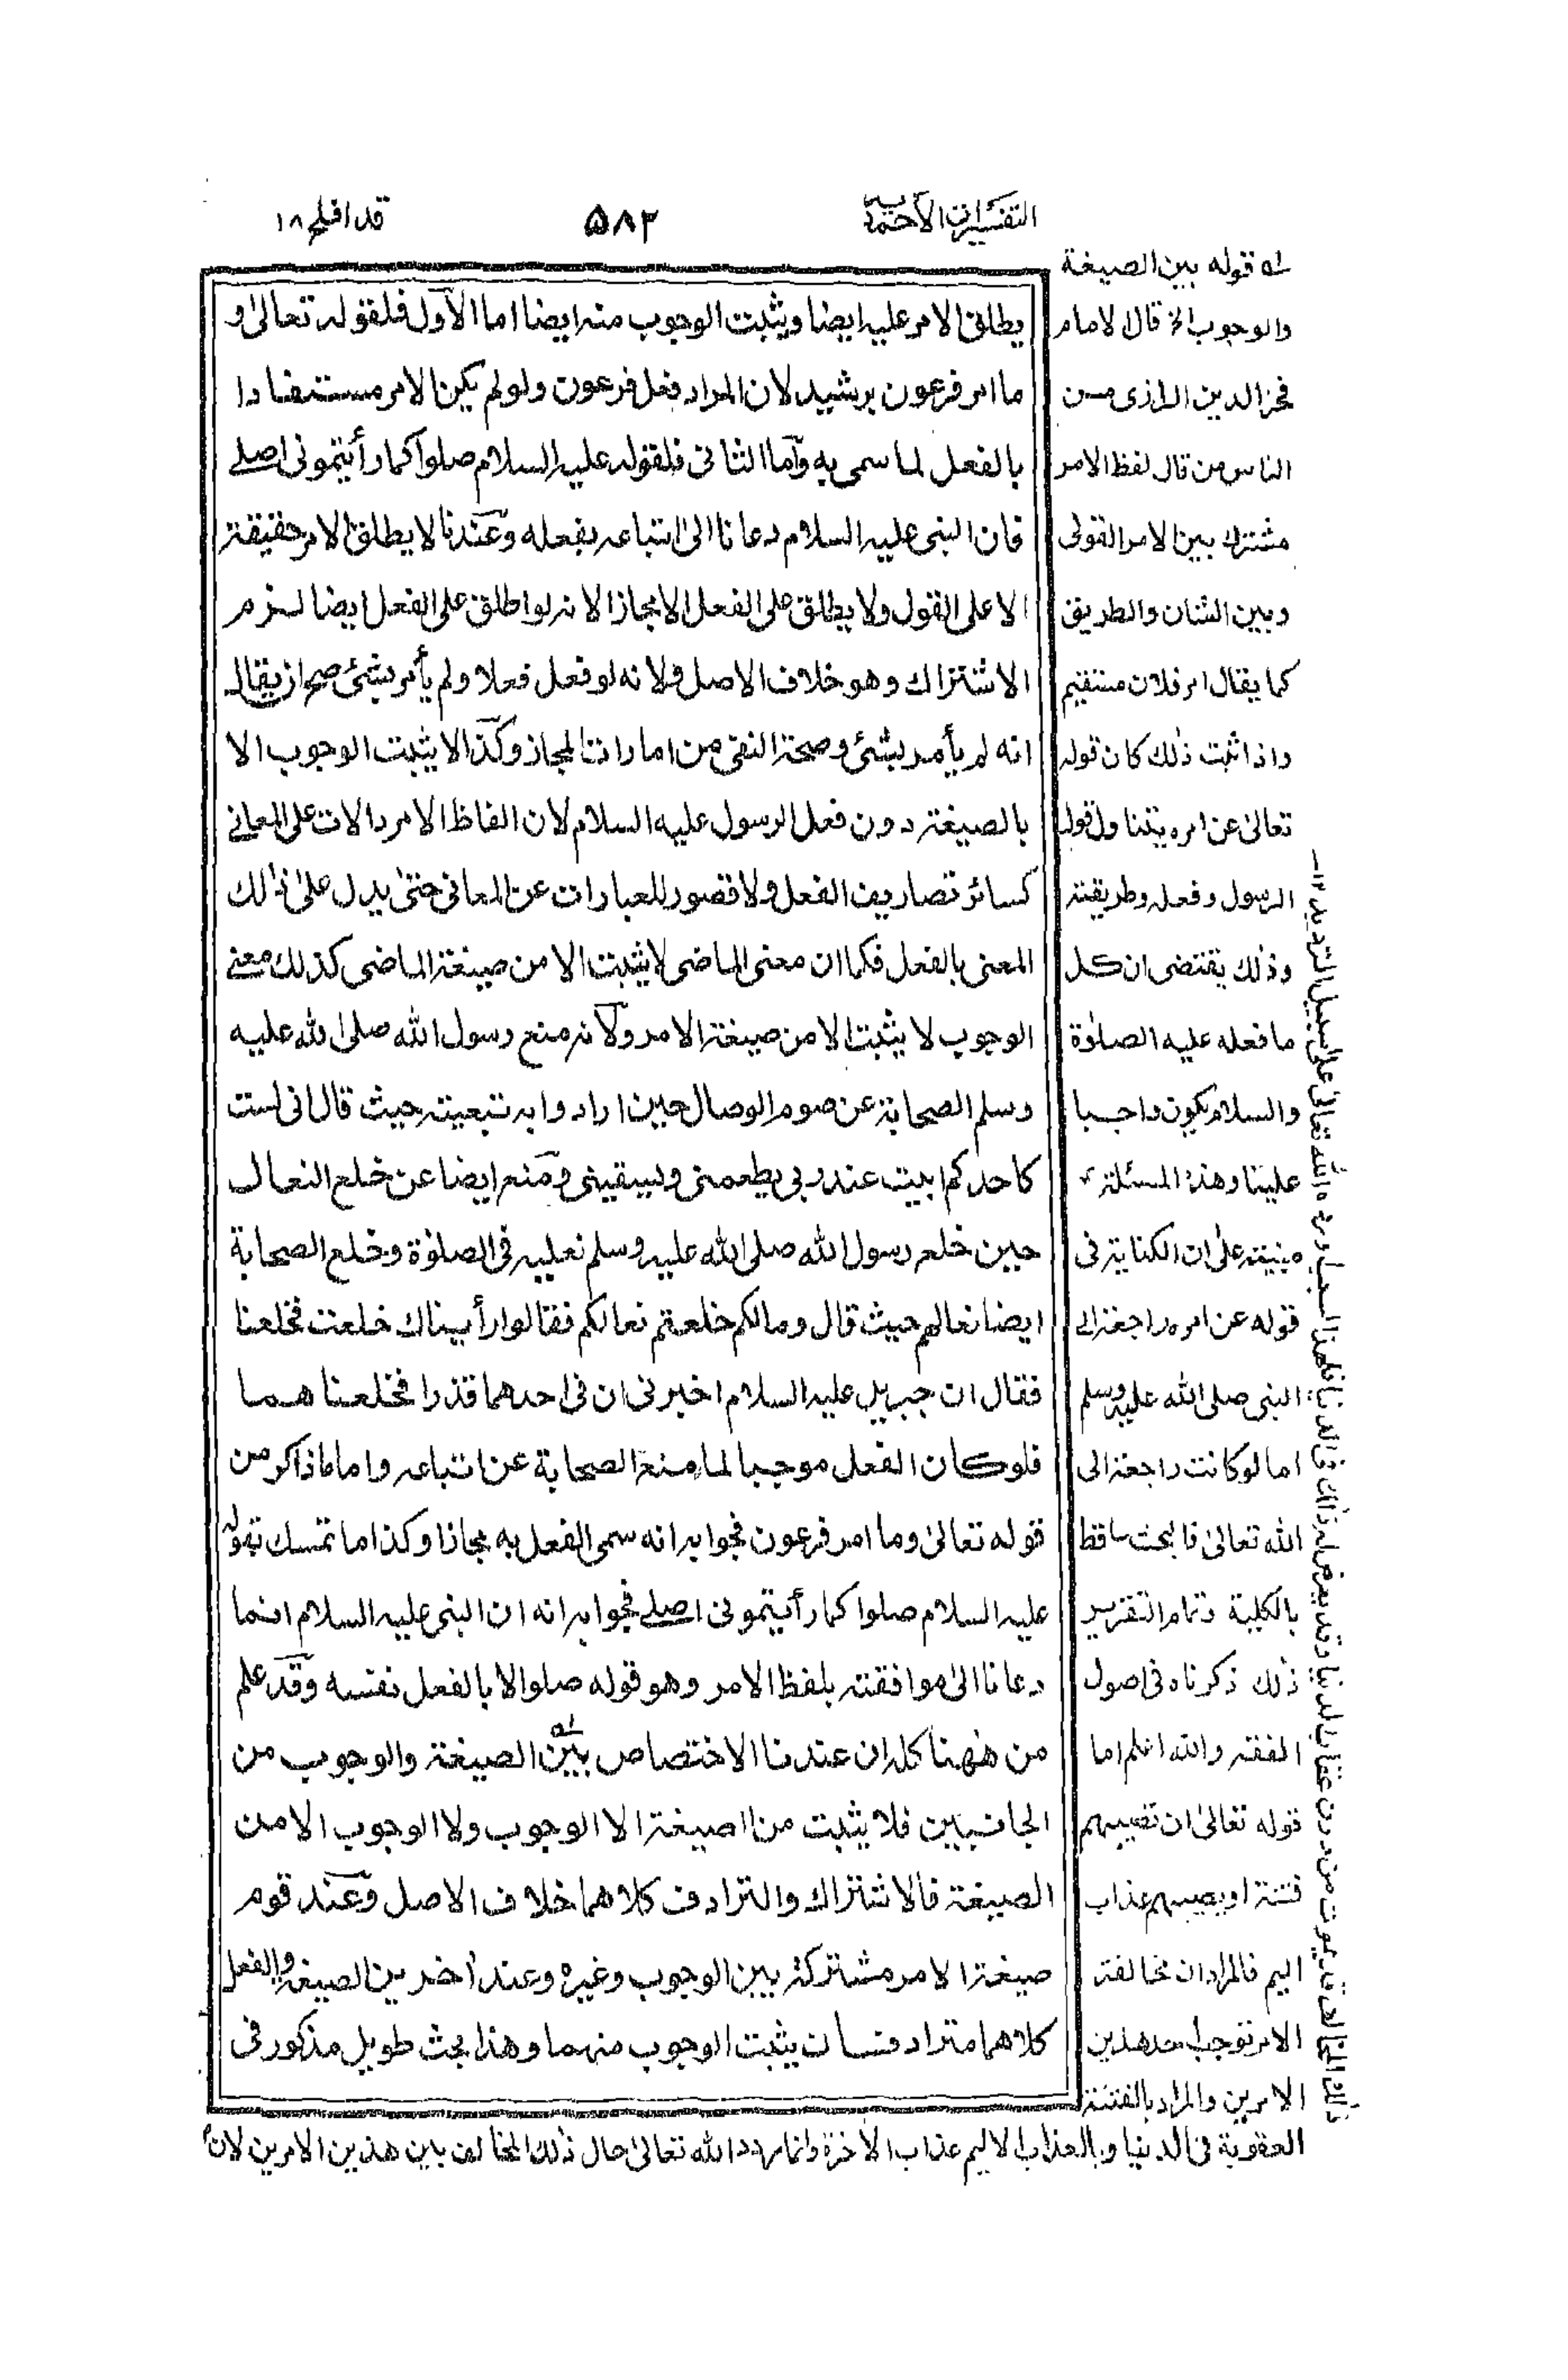 التفسيرات الاحمدية
٥٨٢
قد افلح ١٨
يطلق الامر عليه ايضا ويثبت الوجوب منه ايضا اما الاول فلقوله تعالىٰ و
ما امر فرعون برشيد لان المراد فعل فرعون ولو لم يكن الامر مستفادا
بالفعل لما سمى به وآما الثانى فلقوله عليه السلام صلوا كما رأيتمونى اصلے
فان النبى عليه السلام دعانا الىٰ اتباعه بفعله وعندنا لا يطلق الامر حقيقة
الا على القول ولا يطلق على الفعل الا مجازا لانه لو اطلق على الفعل ايضا لزم
الاشتراك وهو خلاف الاصل ولانه لو فعل فعلا ولم يأمر بشئ صح ان يقال
انه لم يأمر بشئ وصحة النفى من امارات المجاز وكذا لا يثبت الوجوب الا
بالصيغة دون فعل الرسول عليه السلام لان الفاظ الامر دالات على المعانے
كسائر تصاريف الفعل ولا قصور للعبارات عن المعانى حتىٰ يدل علىٰ ذٰلك
المعنى بالفعل فكما ان معنى الماضى لا يثبت الا من صيغة الماضى كذلك معنے
الوجوب لا يثبت الا من صيغة الامر ولانه منع رسول الله صلى الله عليه
وسلم الصحابة عن صوم الوصال حين ارادوا به تبعيته حيث قال انى لست
كاحدكم ابيت عند ربى يطعمنى ويسقينى ومنع ايضا عن خلع النعال
حين خلع رسول الله صلى الله عليه وسلم نعليه فى الصلوٰة وخلع الصحابة
ايضا نعالهم حيث قال ومالكم خلعتم نعالكم فقالوا رأيناك خلعت فخلعنا
فقال ان جبريل عليه السلام اخبرنى ان فى احدهما قذرا فخلعناهما
فلو كان الفعل موجبا لما منع الصحابة عن اتباعه واما ما ذاكر من
قوله تعالىٰ وما امر فرعون فجوابه انه سمى الفعل به مجازا وكذا ما تمسك بقوله
عليه السلام صلوا كما رأيتمونى اصلے فجوابه انه ان النبى عليه السلام انما
دعانا الىٰ موافقته بلفظ الامر وهو قوله صلوا لا بالفعل نفسه وقد علم
من هٰهنا كله ان عندنا الاختصاص بين الصيغة والوجوب من
الجانبين فلا يثبت من اصيغة الا الوجوب ولا الوجوب الا من
الصيغة فالاشتراك والترادف كلاهما خلاف الاصل وعند قوم
صيغة الامر مشتركة بين الوجوب وغيره وعند اٰخرين الصيغة والفعل
كلاهما مترادفان يثبت الوجوب منهما وهذا بحث طويل مذكور فى
له قوله بين الصيغة
والوجوب الخ قال الامام
فخر الدين الرازى من
الناس من قال لفظ الامر
مشترك بين الامر القولى
وبين الشان والطريق
كما يقال امر فلان مستقيم
واذا ثبت ذٰلك كان قوله
تعالىٰ عن امره يتناول قول
الرسول وفعله وطريقته
وذٰلك يقتضى ان كل
ما فعله عليه الصلوٰة
والسلام يكون واجبا
علينا وهذه المسئلة
مبنية علىٰ ان الكناية فى
قوله عن امره راجعة الى
النبى صلى الله عليه وسلم
اما لو كانت راجعة الى
الله تعالىٰ فالبحث ساقط
بالكلية وتمام التقرير
ذٰلك ذكرناه فى اصول
الفقه والله اعلم اما
قوله تعالىٰ ان تصيبهم
فتنة او يصيبهم عذاب
اليم فالمراد ان مخالفة
الامر توجب احد هذين
الامرين والمراد بالفتنة
العقوبة فى الدنيا وبالعذاب الاليم عذاب الاٰخرة وانما ردد الله تعالىٰ حال ذٰلك المخالف بين هذين الامرين لان
ذٰلك المخالف قد يموت من دون عقاب الدنيا وقد يعرض له ذٰلك فى الدنيا فلهذا السبب اورده الله تعالىٰ علىٰ سبيل الترديد ١٢